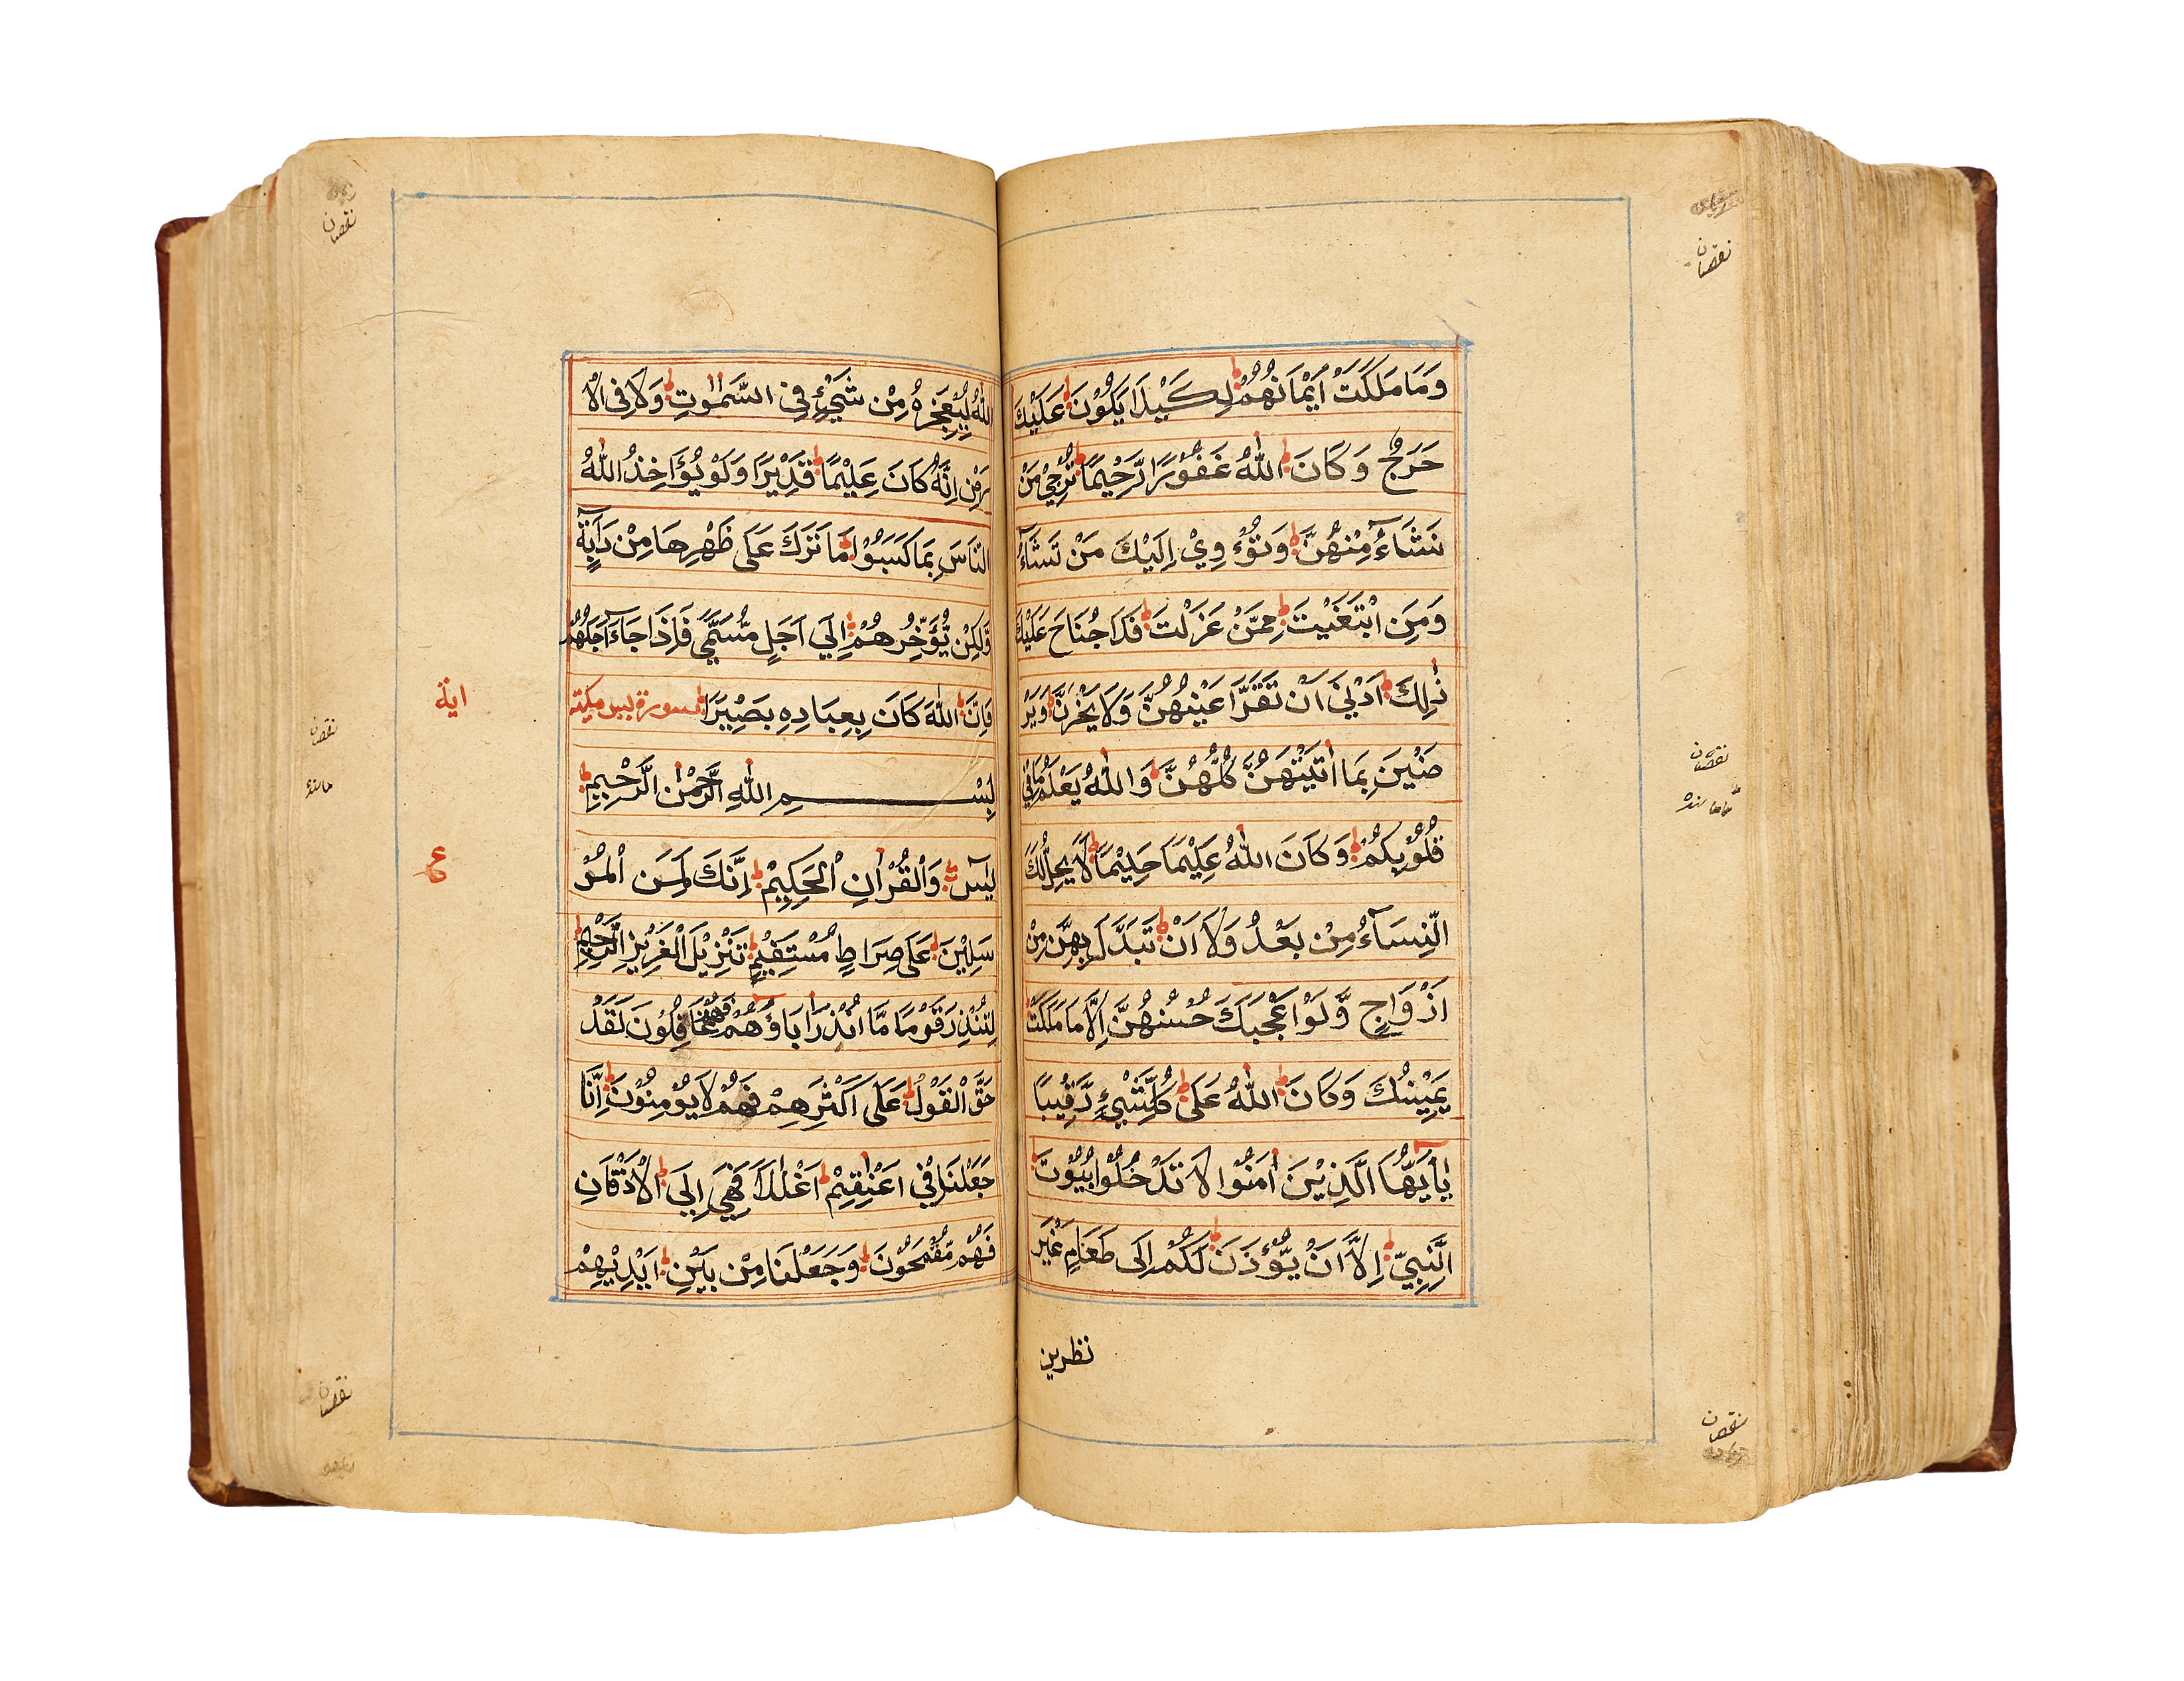 وَمَا مَلَكَتْ اَيْمَانُهُمْ لِكَيْلَا يَكُوْنَ عَلَيْكَ
حَرَجٌ وَكَانَ اللّٰهُ غَفُوْرًا رَّحِيْمًا تُرْجِيْ مَنْ
نَشَآءُ مِنْهُنَّ وَتُؤْوِيْ اِلَيْكَ مَنْ تَشَآءُ
وَمَنِ ابْتَغَيْتَ مِمَّنْ عَزَلْتَ فَلَا جُنَاحَ عَلَيْكَ
ذٰلِكَ اَدْنٰى اَنْ تَقَرَّ اَعْيُنُهُنَّ وَلَا يَحْزَنَّ وَيَرْ
ضَيْنَ بِمَا اٰتَيْتَهُنَّ كُلُّهُنَّ وَاللّٰهُ يَعْلَمُ مَا فِيْ
قُلُوْبِكُمْ وَكَانَ اللّٰهُ عَلِيْمًا حَلِيْمًا لَا يَحِلُّ لَكَ
النِّسَآءُ مِنْ بَعْدُ وَلَا اَنْ تَبَدَّلَ بِهِنَّ مِنْ
اَزْوَاجٍ وَّلَوْ اَعْجَبَكَ حُسْنُهُنَّ اِلَّا مَا مَلَكَتْ
يَمِيْنُكَ وَكَانَ اللّٰهُ عَلٰى كُلِّ شَيْءٍ رَّقِيْبًا
يٰاَيُّهَا الَّذِيْنَ اٰمَنُوْا لَا تَدْخُلُوْا بُيُوْتَ
النَّبِيِّ اِلَّا اَنْ يُّؤْذَنَ لَكُمْ اِلٰى طَعَامٍ غَيْرَ
نظرين
نقصان
نقصان
نقصان
اللّٰهُ لِيُعْجِزَهُ مِنْ شَيْءٍ فِي السَّمٰوٰتِ وَلَا فِي الْاَ
رْضِ اِنَّهُ كَانَ عَلِيْمًا قَدِيْرًا وَلَوْ يُؤَاخِذُ اللّٰهُ
النَّاسَ بِمَا كَسَبُوْا مَا تَرَكَ عَلٰى ظَهْرِهَا مِنْ دَآبَّةٍ
وَّلٰكِنْ يُّؤَخِّرُهُمْ اِلٰى اَجَلٍ مُّسَمًّى فَاِذَا جَآءَ اَجَلُهُمْ
فَاِنَّ اللّٰهَ كَانَ بِعِبَادِهِ بَصِيْرًا سورة يس مكية
بِسْمِ اللّٰهِ الرَّحْمٰنِ الرَّحِيْمِ
يٰسٓ وَالْقُرْاٰنِ الْحَكِيْمِ اِنَّكَ لَمِنَ الْمُرْ
سَلِيْنَ عَلٰى صِرَاطٍ مُسْتَقِيْمٍ تَنْزِيْلَ الْعَزِيْزِ الرَّحِيْمِ
لِتُنْذِرَ قَوْمًا مَّا اُنْذِرَ اٰبَاؤُهُمْ فَهُمْ غَافِلُوْنَ لَقَدْ
حَقَّ الْقَوْلُ عَلٰى اَكْثَرِهِمْ فَهُمْ لَا يُؤْمِنُوْنَ اِنَّا
جَعَلْنَا فِيْ اَعْنَاقِهِمْ اَغْلٰلًا فَهِيَ اِلَى الْاَذْقَانِ
فَهُمْ مُّقْمَحُوْنَ وَجَعَلْنَا مِنْ بَيْنِ اَيْدِيْهِمْ
اية
ع
نقصان
نقصان
نقصان